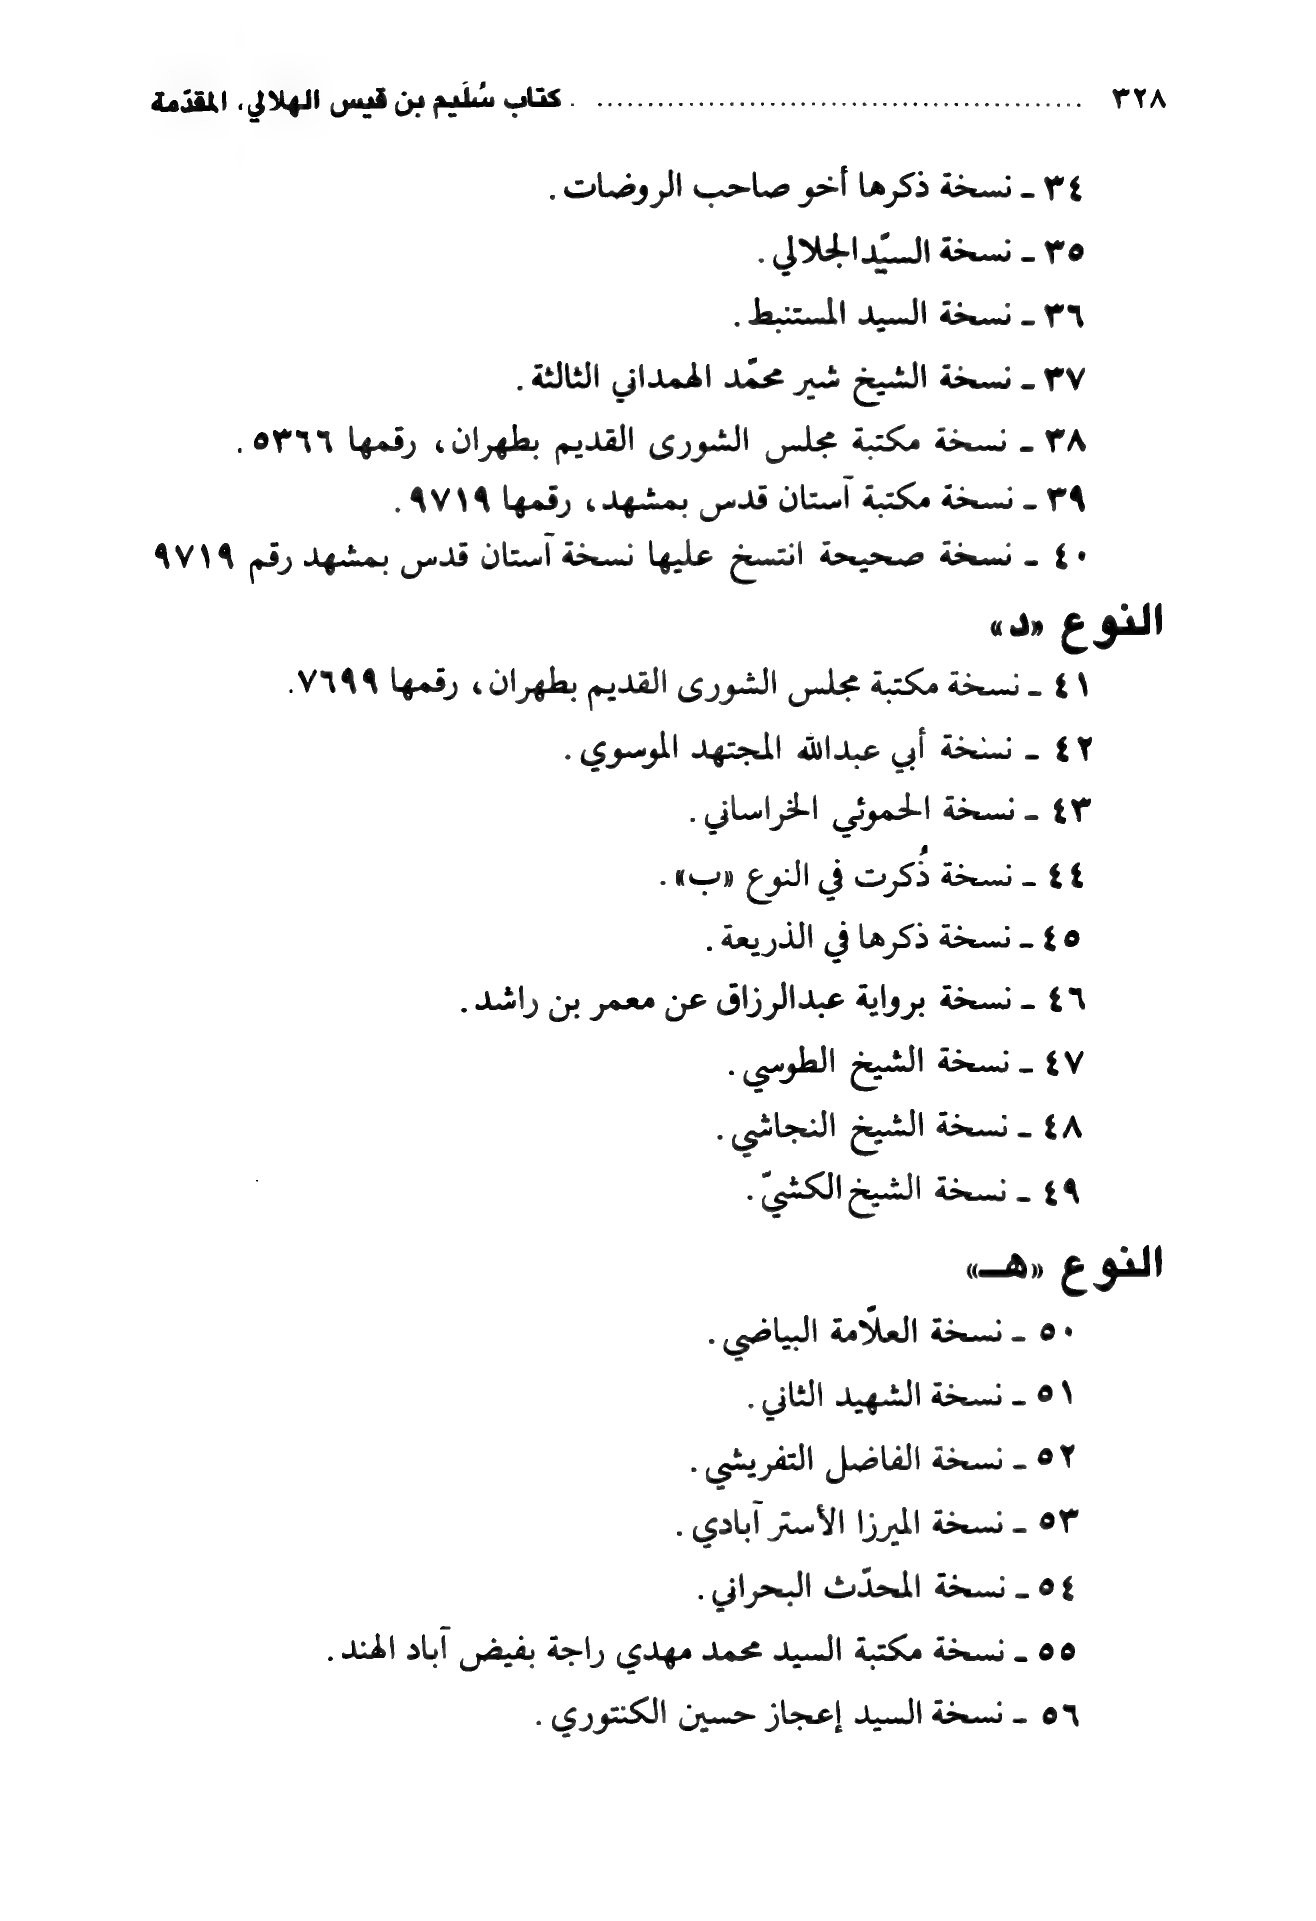 ٣٢٨ ........................................ كتاب سُلَيم بن قيس الهلالي، المقدّمة
٣٤ ـ نسخة ذكرها أخو صاحب الروضات.
٣٥ ـ نسخة السيّد الجلالي.
٣٦ ـ نسخة السيد المستنبط.
٣٧ ـ نسخة الشيخ شير محمّد الهمداني الثالثة.
٣٨ ـ نسخة مكتبة مجلس الشورى القديم بطهران، رقمها ٥٣٦٦.
٣٩ ـ نسخة مكتبة آستان قدس بمشهد، رقمها ٩٧١٩.
٤٠ ـ نسخة صحيحة انتسخ عليها نسخة آستان قدس بمشهد رقم ٩٧١٩
النوع «د»
٤١ ـ نسخة مكتبة مجلس الشورى القديم بطهران، رقمها ٧٦٩٩.
٤٢ ـ نسخة أبي عبدالله المجتهد الموسوي.
٤٣ ـ نسخة الحموئي الخراساني.
٤٤ ـ نسخة ذُكرت في النوع «ب».
٤٥ ـ نسخة ذكرها في الذريعة.
٤٦ ـ نسخة برواية عبدالرزاق عن معمر بن راشد.
٤٧ ـ نسخة الشيخ الطوسي.
٤٨ ـ نسخة الشيخ النجاشي.
٤٩ ـ نسخة الشيخ الكشيّ.
النوع «هـ»
٥٠ ـ نسخة العلّامة البياضي.
٥١ ـ نسخة الشهيد الثاني.
٥٢ ـ نسخة الفاضل التفريشي.
٥٣ ـ نسخة الميرزا الأستر آبادي.
٥٤ ـ نسخة المحدّث البحراني.
٥٥ ـ نسخة مكتبة السيد محمد مهدي راجة بفيض آباد الهند.
٥٦ ـ نسخة السيد إعجاز حسين الكنتوري.